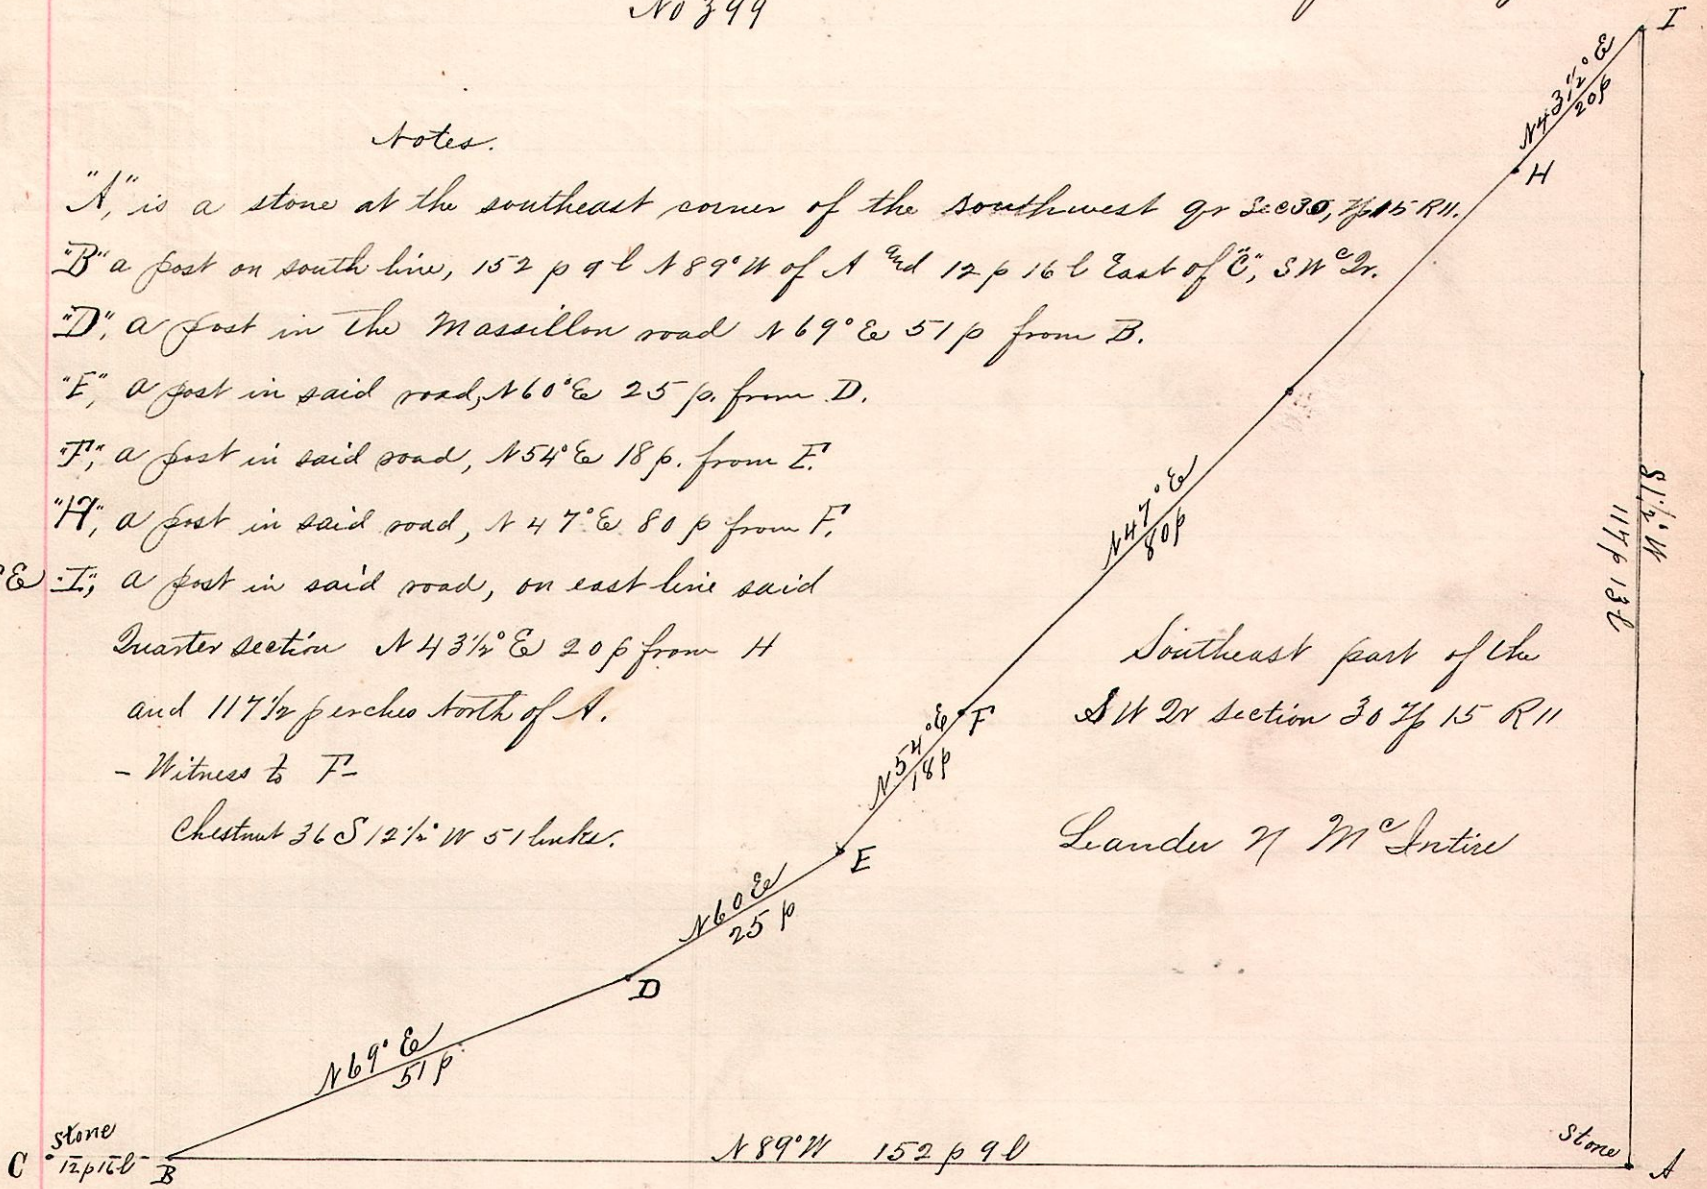 No 399
I
N 43 1/2° E
20p
H
Notes.
"A", is a stone at the southeast corner of the southwest qr Sec 30, Tp 15 R 11.
"B" a post on south line, 152 p 9 l N 89° W of A and 12 p 16 l East of "C", S W c Qr.
"D", a post in the Massillon road N 69° E 51 p from B.
"E", a post in said road, N 60° E 25 p. from D.
"F", a post in said road, N 54° E 18 p. from E.
"H", a post in said road, N 47° E 80 p from F.
E "I", a post in said road, on east line said
Quarter section N 43 1/2° E 20 p from H
and 117 1/2 perches North of A.
- Witness to F -
Chestnut 36 S 12 1/2° W 51 links.
N 47° E
80p
S 1 1/2° W
117 p 13 l
Southeast part of the
S W Qr section 30 Tp 15 R 11
Leander N Mc Intire
F
N 54° E
18p
E
N 60 E
25 p
D
N 69° E
51 p
C stone
12 p 16 l
B
N 89° W 152 p 9 l
Stone
A